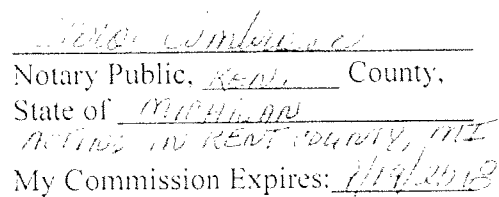 Notary Public, KENT County,
State of MICHIGAN
ACTING IN KENT COUNTY, MI
My Commission Expires: